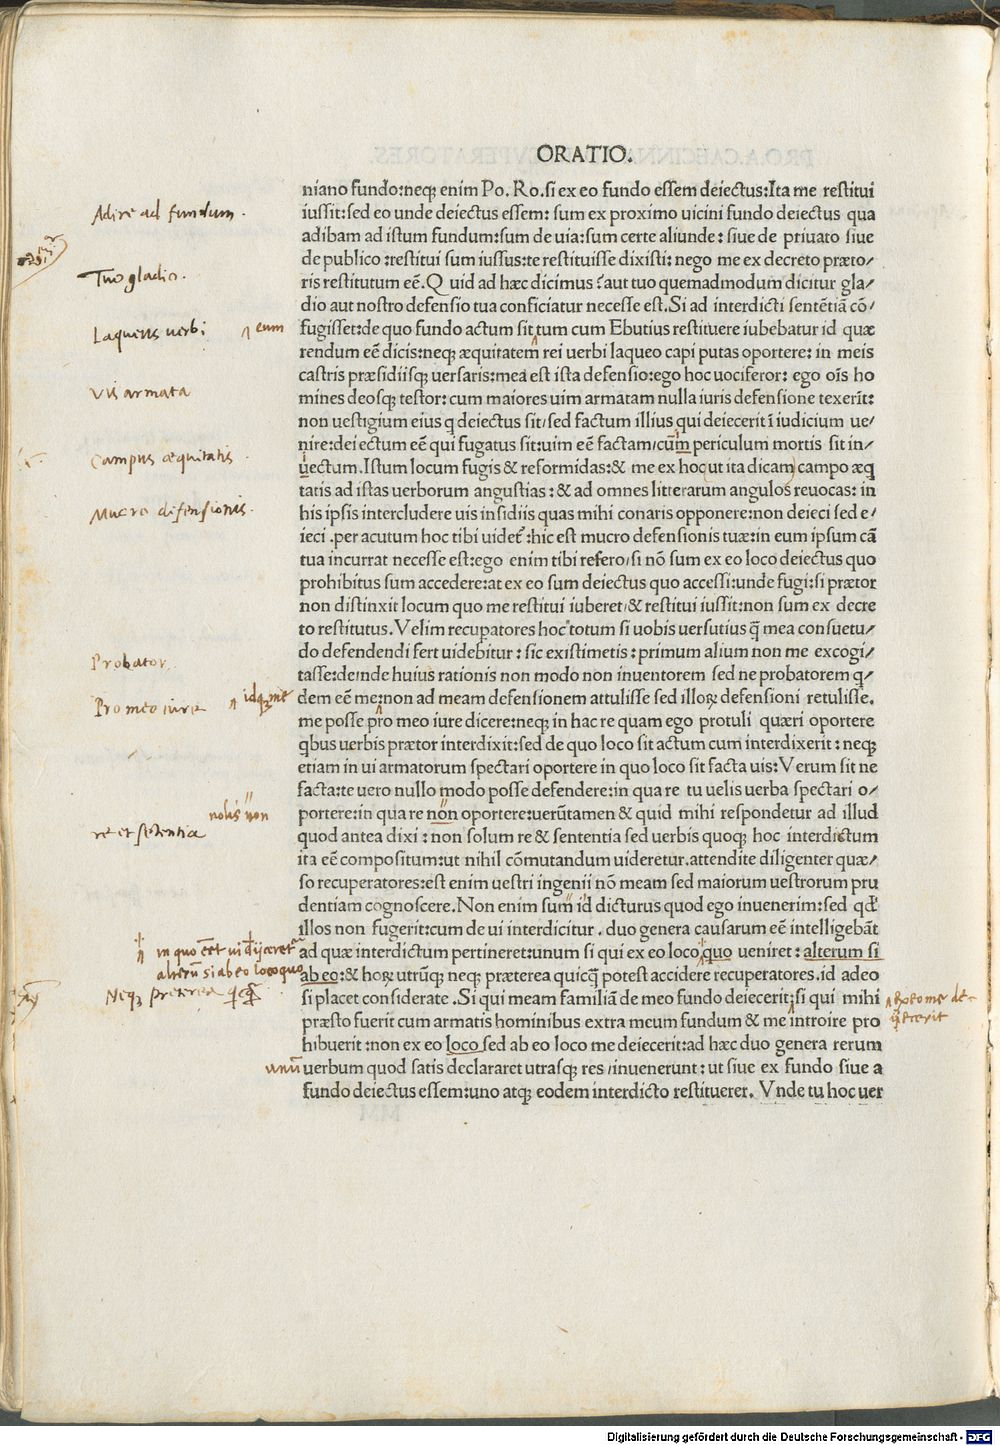 ORATIO.
niano fundo:neq; enim Po. Ro. si ex eo fundo essem deiectus:Ita me restitui
Adire ad fundum.
iussit:sed eo unde deiectus essem: sum ex proximo uicini fundo deiectus qua
adibam ad istum fundum:sum de uia:sum certe aliunde: siue de priuato siue
de publico:restitui sum iussus:te restituisse dixisti: nego me ex decreto præto/
Tuo gladio.
ris restitutum eē. Quid ad hæc dicimus? aut tuo quemadmodum dicitur gla/
dio aut nostro defensio tua conficiatur necesse est. Si ad interdicti sentētiā cō/
Laqueus uerbi
eum
fugisset:de quo fundo actum sit tum cum Ebutius restituere iubebatur id quæ
rendum eē dicis:neq; æquitatem rei uerbi laqueo capi putas oportere: in meis
castris præsidiisq; uersaris:mea est ista defensio:ego hoc uociferor: ego oīs ho
Vis armata
mines deosq; testor: cum maiores uim armatam nulla iuris defensione texerit:
non uestigium eius q deiectus sit/sed factum illius qui deiecerit ī iudicium ue/
nire:deiectum eē qui fugatus sit:uim eē factam/cum periculum mortis sit in/
Campus æquitatis
uectum. Istum locum fugis & reformidas:& me ex hoc (ut ita dicam) campo æq
tatis ad istas uerborum angustias: & ad omnes litterarum angulos reuocas: in
Mucro difensionis.
his ipsis intercludere uis insidiis quas mihi conaris opponere:non deieci sed e/
ieci. per acutum hoc tibi uidet̄:hic est mucro defensionis tuæ:in eum ipsum cā
tua incurrat necesse est:ego enim tibi refero/si nō sum ex eo loco deiectus quo
prohibitus sum accedere:at ex eo sum deiectus quo accessi:unde fugi:si prætor
non distinxit locum quo me restitui iuberet/& restitui iussit:non sum ex decre
to restitutus. Velim recuperatores hoc totum si uobis uersutius q̄ mea consuetu/
Probator
do defendendi fert uidebitur: sic existimetis: primum alium non me excogi/
tasse:deinde huius rationis non modo non inuentorem sed ne probatorem q/
Pro meo iure
idq; me
dem eē me:non ad meam defensionem attulisse sed illoꝝ defensioni retulisse.
me posse pro meo iure dicere:neq; in hac re quam ego protuli quæri oportere
qbus uerbis prætor interdixit:sed de quo loco sit actum cum interdixerit: neq;
etiam in ui armatorum spectari oportere in quo loco sit facta uis: Verum sit ne
facta:te uero nullo modo posse defendere:in qua re tu uelis uerba spectari o/
nolis non
portere:in qua re non oportere:uerūtamen & quid mihi respondetur ad illud
re et sētentia
quod antea dixi: non solum re & sententia sed uerbis quoq; hoc interdictum
ita eē compositum:ut nihil cōmutandum uideretur. attendite diligenter quæ/
so recuperatores:est enim uestri ingenii nō meam sed maiorum uestrorum pru
dentiam cognoscere. Non enim sum id dicturus quod ego inuenerim:sed qd
illos non fugerit:cum de ui interdicitur. duo genera causarum eē intelligebāt
ad quæ interdictum pertineret:unum si qui ex eo loco quo ueniret: alterum si
alterū si ab eo loco quo
ab eo:& hoꝝ utrūnq; neq; præterea quicq̄ potest accidere recuperatores. id adeo
Neq; preterea
si placet considerate. Si qui meam familiā de meo fundo deiecerit:si qui mihi
præsto fuerit cum armatis hominibus extra meum fundum & me introire pro
hibuerit:non ex eo loco sed ab eo loco me deiecerit:ad hæc duo genera rerum
unū
uerbum quod satis declararet utrasq; res/inuenerunt: ut siue ex fundo siue a
fundo deiectus essem:uno atq; eodem interdicto restituerer. Vnde tu hoc uer
Digitalisierung gefördert durch die Deutsche Forschungsgemeinschaft - DFG